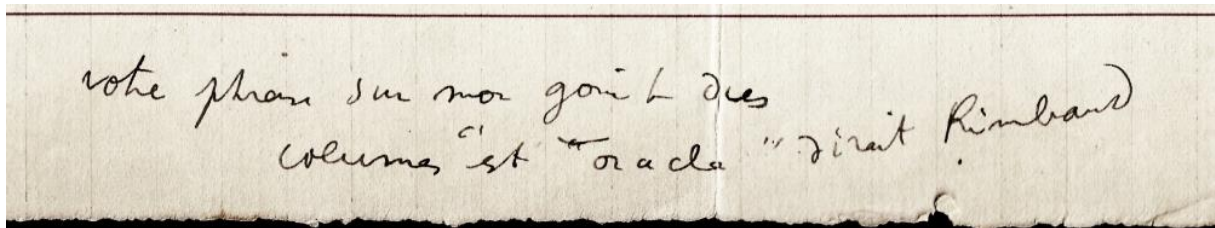 votre phrase sur mon goût des
colonnes c'est "oracle" dirait Rimbaud.